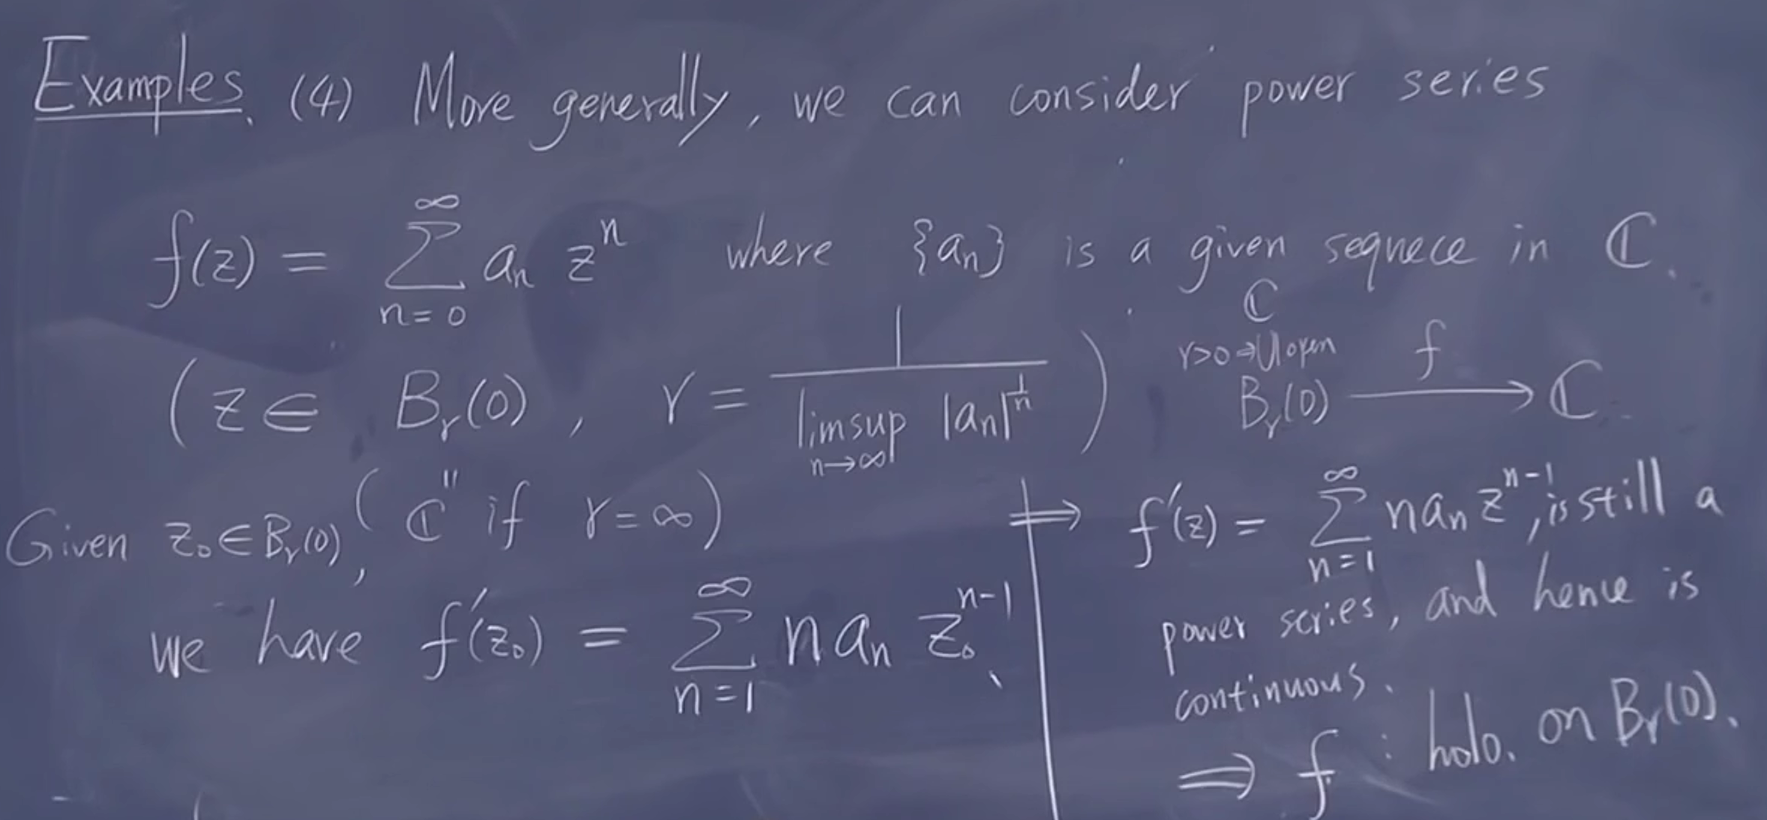 Examples. (4) More generally, we can consider power series
f(z) = ∑_{n=0}^{∞} a_n z^n where {a_n} is a given sequece in ℂ.
(z ∈ B_r(0), r = 1 / limsup_{n→∞} |a_n|^{1/n})
(ℂ if r = ∞)
ℂ
r>0 ⇒ ∪ open
B_r(0) —f→ ℂ
Given z_0 ∈ B_r(0),
we have f'(z_0) = ∑_{n=1}^{∞} n a_n z_0^{n-1}.
⇒ f'(z) = ∑_{n=1}^{∞} n a_n z^{n-1}, is still a
power series, and hence is
continuous.
⇒ f : holo. on B_r(0).